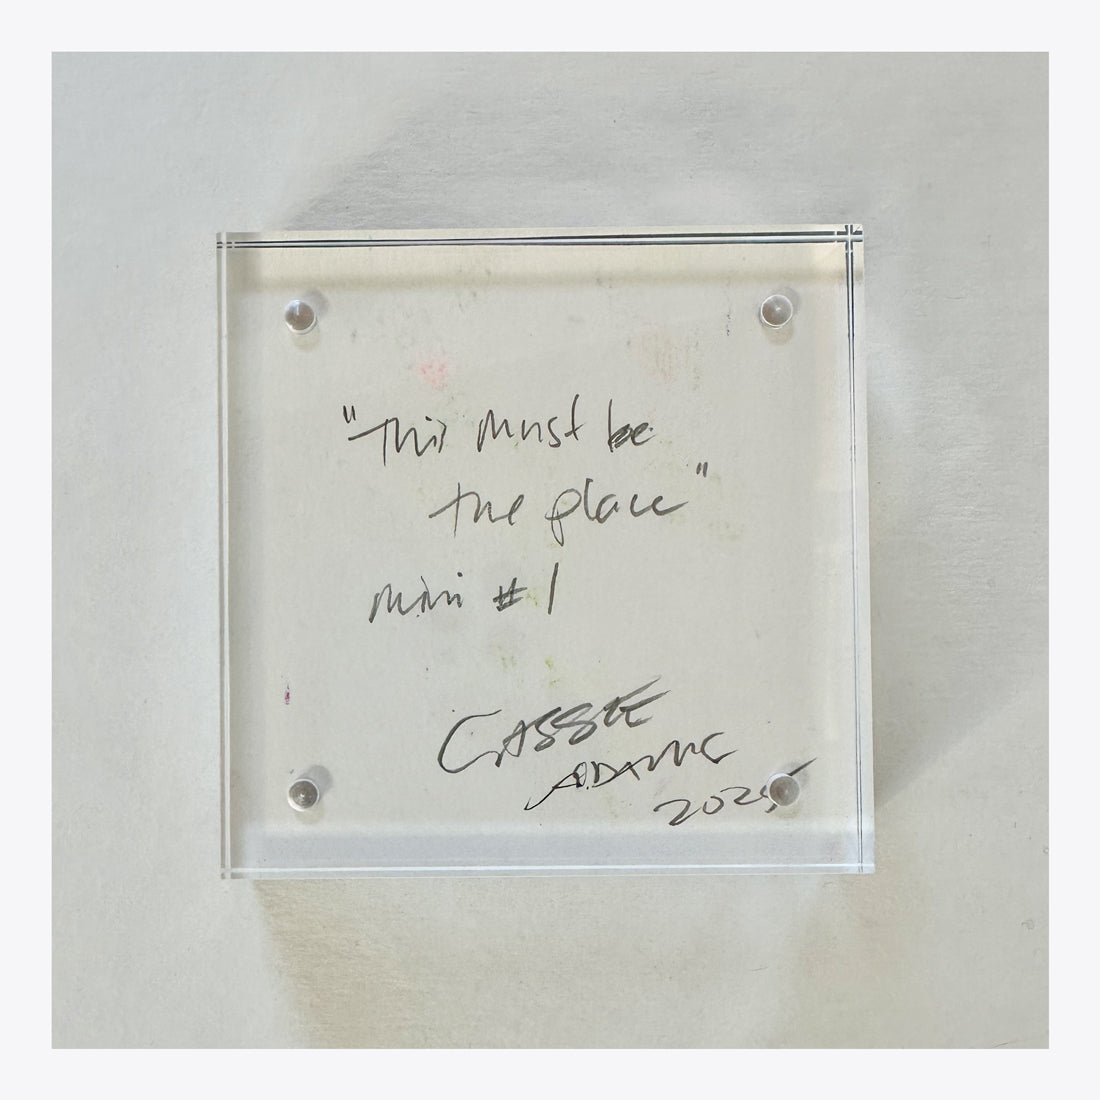 "This must be
the place"
mini #1
CASSIE
ADAMS
2025